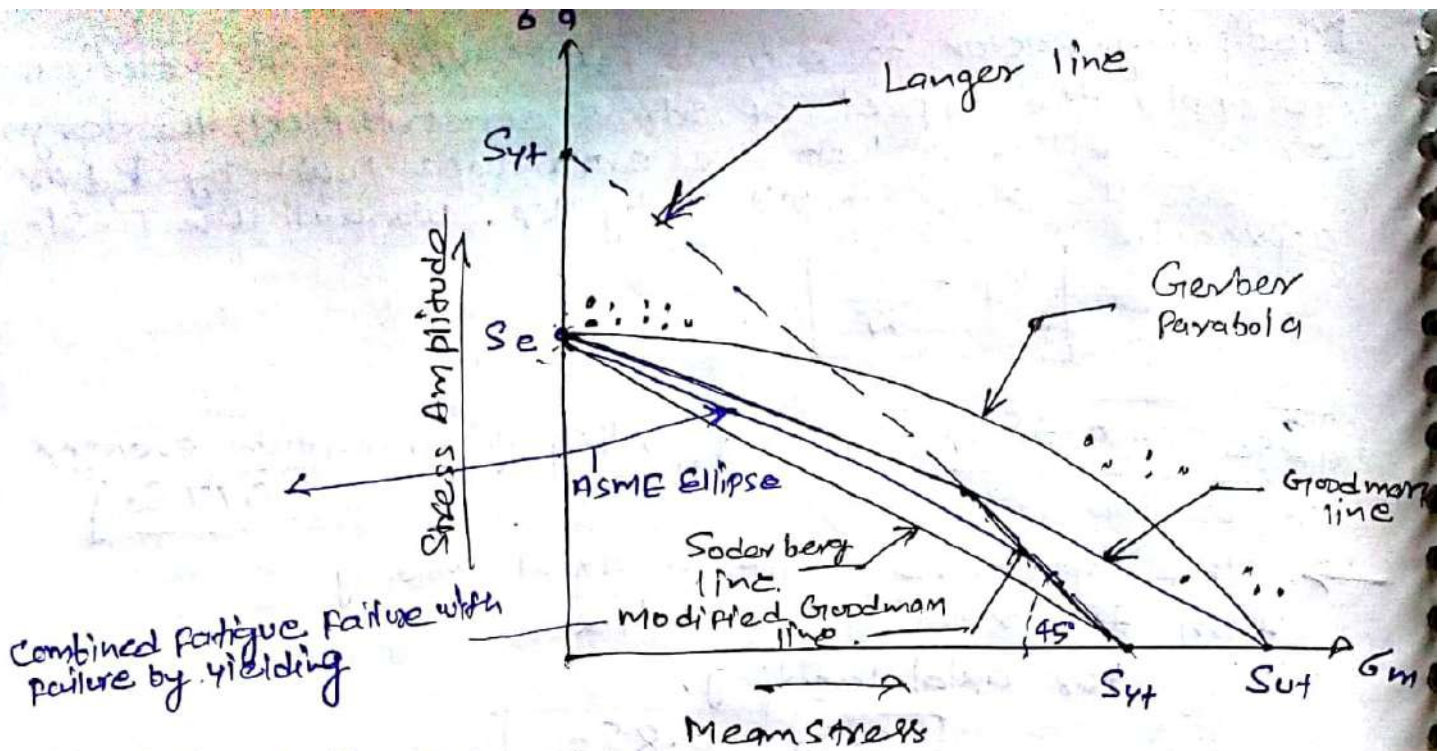 σa
Langer line
Syt
Stress Amplitude
Gerber
Parabola
Se
ASME Ellipse
Goodman
line
Soderberg
line.
Modified Goodman
line.
Combined fatigue failure with
failure by yielding
45
Syt
Sut
σm
Mean stress